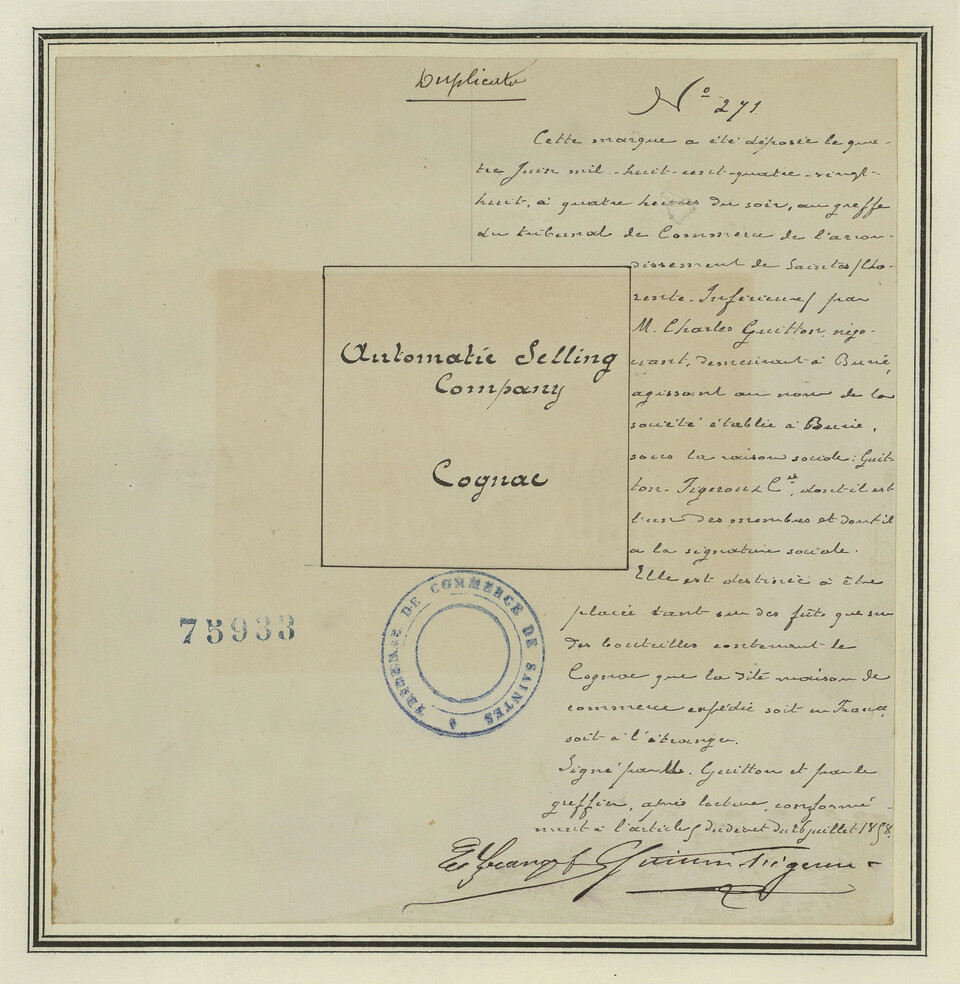 Duplicata
N° 271
Cette marque a été déposée le qua-
tre Juin mil-huit-cent-quatre-vingt-
huit, à quatre heures du soir, au greffe
du tribunal de Commerce de l'arron-
dissement de Saintes (Cha-
rente-Inférieure) par
M. Charles Guitton, négo-
ciant, demeurant à Burie,
agissant au nom de la
société établie à Burie,
sous la raison sociale: Guit-
ton-Tigeroux & Cie, dont il est
l'un des membres et dont il
a la signature sociale.
Elle est destinée à être
placée tant sur des fûts que sur
des bouteilles contenant le
Cognac que la dite maison de
commerce expédie soit en France
soit à l'étranger.
Signé par M. Guitton et par le
greffier, après lecture, conformé-
ment à l'article 5 du décret du 26 juillet 1858.
Automatic Selling
Company
Cognac
75933
TRIBUNAL DE COMMERCE DE SAINTES